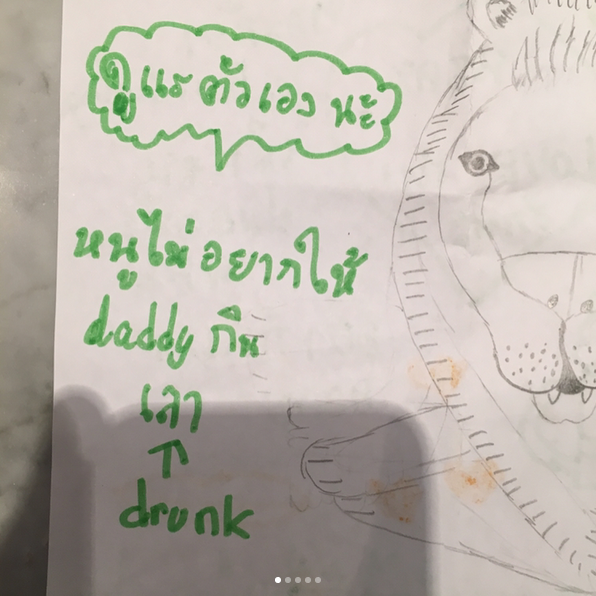 ดูแร ตัวเอง นะ้
หนูไม่อยากให้
daddy กิน
เลา
↑
drunk